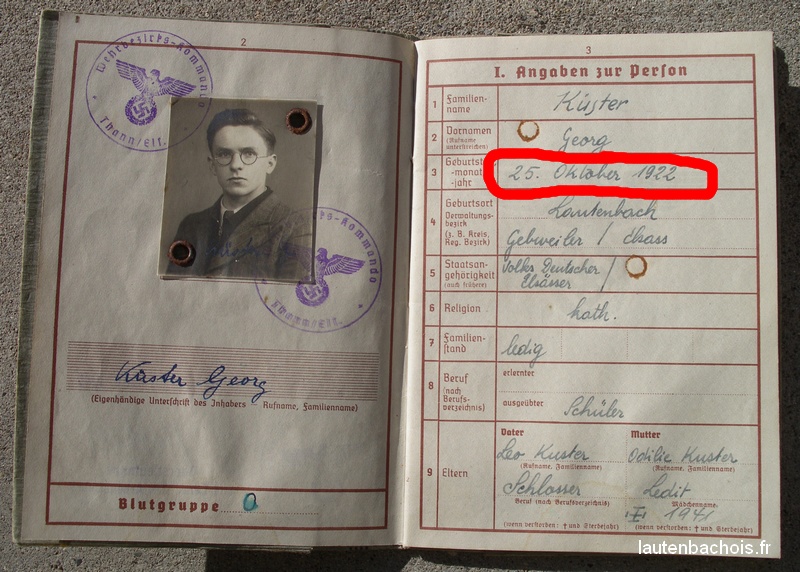 2
Wehrbezirks-Kommando
Thann/Els.
Wehrbezirks-Kommando
Thann/Els.
Küster Georg
(Eigenhändige Unterschrift des Inhabers – Rufname, Familienname)
Blutgruppe O
3
I. Angaben zur Person
1 Familien-
name
Küster
2 Vornamen
(Rufname
unterstreichen)
Georg
3 Geburtst
-monat
-jahr
25. Oktober 1922
4 Geburtsort
Verwaltungs-
bezirk
(z. B. Kreis,
Reg. Bezirk)
Lautenbach
Gebweiler / Elsass
5 Staatsan-
gehörigkeit
(auch frühere)
Volks Deutscher /
Elsässer
6 Religion
kath.
7 Familien-
stand
ledig
8 Beruf
(nach
Berufs-
verzeichnis)
erlernter
ausgeübter
Schüler
9 Eltern
Vater Mutter
Leo Kuster Odilie Kuster
(Rufname, Familienname) (Rufname, Familienname)
Schlosser
Beruf (nach Berufsverzeichnis) Mädchenname
1941
(wenn verstorben: † und Sterbejahr) (wenn verstorben: † und Sterbejahr)
lautenbachois.fr